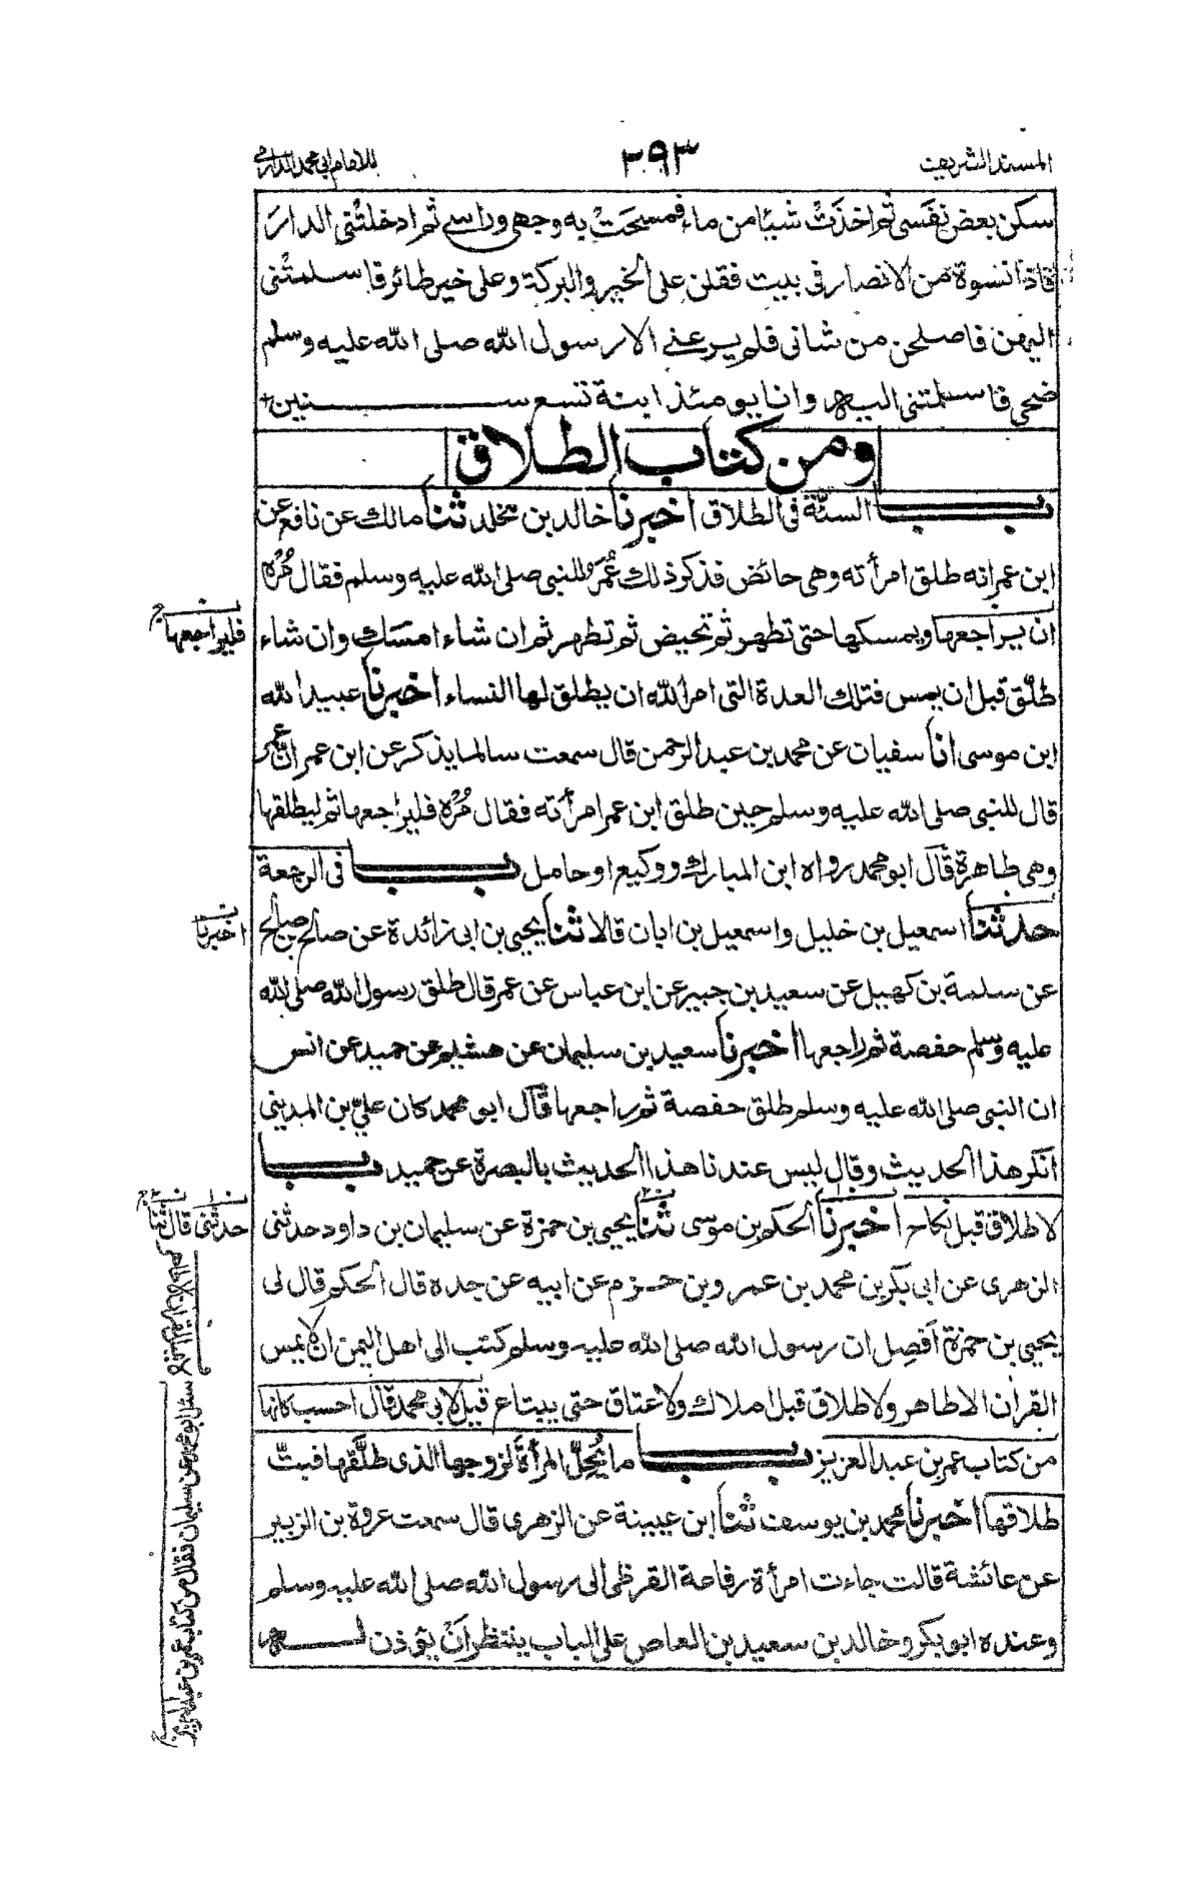 المسند الشريف ٢٩٣ للامام ابي محمد الدارمي
سكن بعض نفسي ثم اخذت شيئا من ماء فمسحت به وجهي وراسي ثم ادخلتني الدار
فاذا نسوة من الانصار في بيت فقلن على الخير والبركة وعلى خير طائر فاسلمتني
اليهن فاصلحن من شاني فلم يرعني الا رسول الله صلى الله عليه وسلم
ضحى فاسلمتني اليه وانا يومئذ ابنة تسع سنين +
ومن كتاب الطلاق
باب السنة في الطلاق اخبرنا خالد بن مخلد ثنا مالك عن نافع عن
ابن عمر انه طلق امرأته وهي حائض فذكر ذلك عمر للنبي صلى الله عليه وسلم فقال مره
ان يراجعها ويمسكها حتى تطهر ثم تحيض ثم تطهر ثم ان شاء امسك وان شاء
فليراجعها
طلق قبل ان يمس فتلك العدة التي امر الله ان يطلق لها النساء اخبرنا عبيد الله
ابن موسى انا سفيان عن محمد بن عبد الرحمن قال سمعت سالما يذكر عن ابن عمر ان عمر
قال للنبي صلى الله عليه وسلم حين طلق ابن عمر امرأته فقال مره فليراجعها ثم ليطلقها
وهي طاهرة قال ابو محمد رواه ابن المبارك ووكيع او حامل باب في الرجعة
حدثنا اسمعيل بن خليل واسمعيل بن ابان قالا ثنا يحيى بن ابي زائدة عن صالح بن صالح
اخبرنا
عن سلمة بن كهيل عن سعيد بن جبير عن ابن عباس عن عمر قال طلق رسول الله صلى الله
عليه وسلم حفصة ثم راجعها اخبرنا سعيد بن سليمان عن هشيم عن حميد عن انس
ان النبي صلى الله عليه وسلم طلق حفصة ثم راجعها قال ابو محمد كان علي بن المديني
انكر هذا الحديث وقال ليس عندنا هذا الحديث بالبصرة عن حميد باب
لا طلاق قبل نكاح اخبرنا الحكم بن موسى ثنا يحيى بن حمزة عن سليمان بن داود حدثني
حدثني قال ثنا
الزهري عن ابي بكر بن محمد بن عمرو بن حزم عن ابيه عن جده قال الحكم قال لي
يحيى بن حمزة أفصل ان رسول الله صلى الله عليه وسلم كتب الى اهل اليمن ان لا يمس
القران الا طاهر ولا طلاق قبل املاك ولا عتاق حتى يبتاع قيل لابي محمد قال احسب كانها
من كتاب عمر بن عبد العزيز باب ما يحل المرأة لزوجها الذي طلقها فبت
طلاقها اخبرنا محمد بن يوسف ثنا ابن عيينة عن الزهري قال سمعت عروة بن الزبير
عن عائشة قالت جاءت امرأة رفاعة القرظي الى رسول الله صلى الله عليه وسلم
وعنده ابو بكر وخالد بن سعيد بن العاص على الباب ينتظر أن يؤذن له
سئل ابو محمد عن سليمان فقال من كتاب عمر بن عبد العزيز